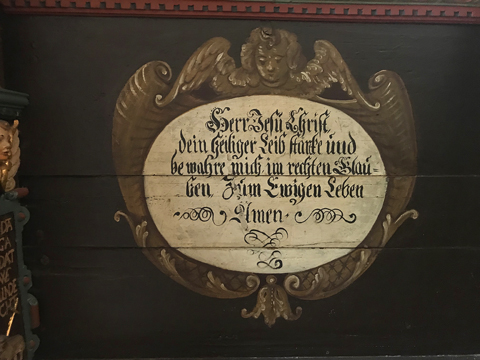 Herr Jesu Christ
dein heiliger Leib starke und
bewahre mich im rechten Glau-
ben Zum Ewigen Leben
Amen.